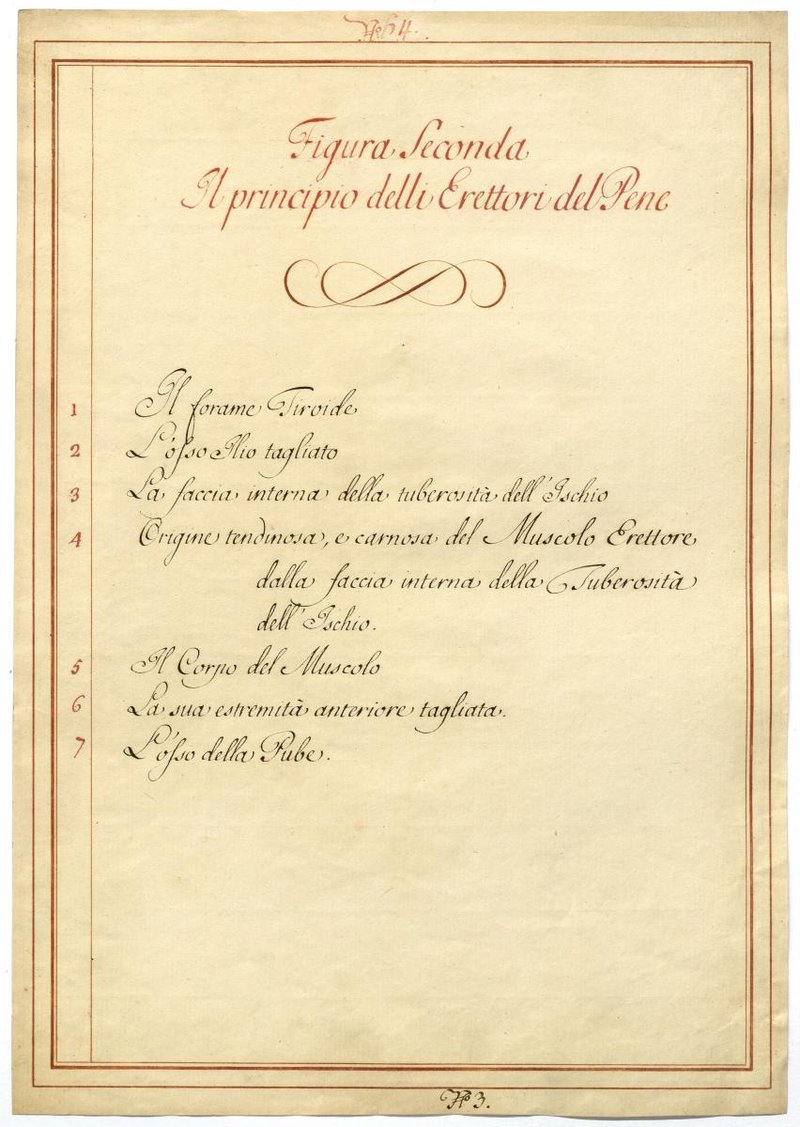 No 64.
Figura Seconda
Il principio delli Erettori del Pene
1 Il forame Tiroide
2 L'osso Ilio tagliato
3 La faccia interna della tuberosità dell'Ischio
4 Origine tendinosa, e carnosa del Muscolo Erettore
dalla faccia interna della Tuberosità
dell'Ischio.
5 Il Corpo del Muscolo
6 La sua estremità anteriore tagliata.
7 L'osso della Pube.
No 3.